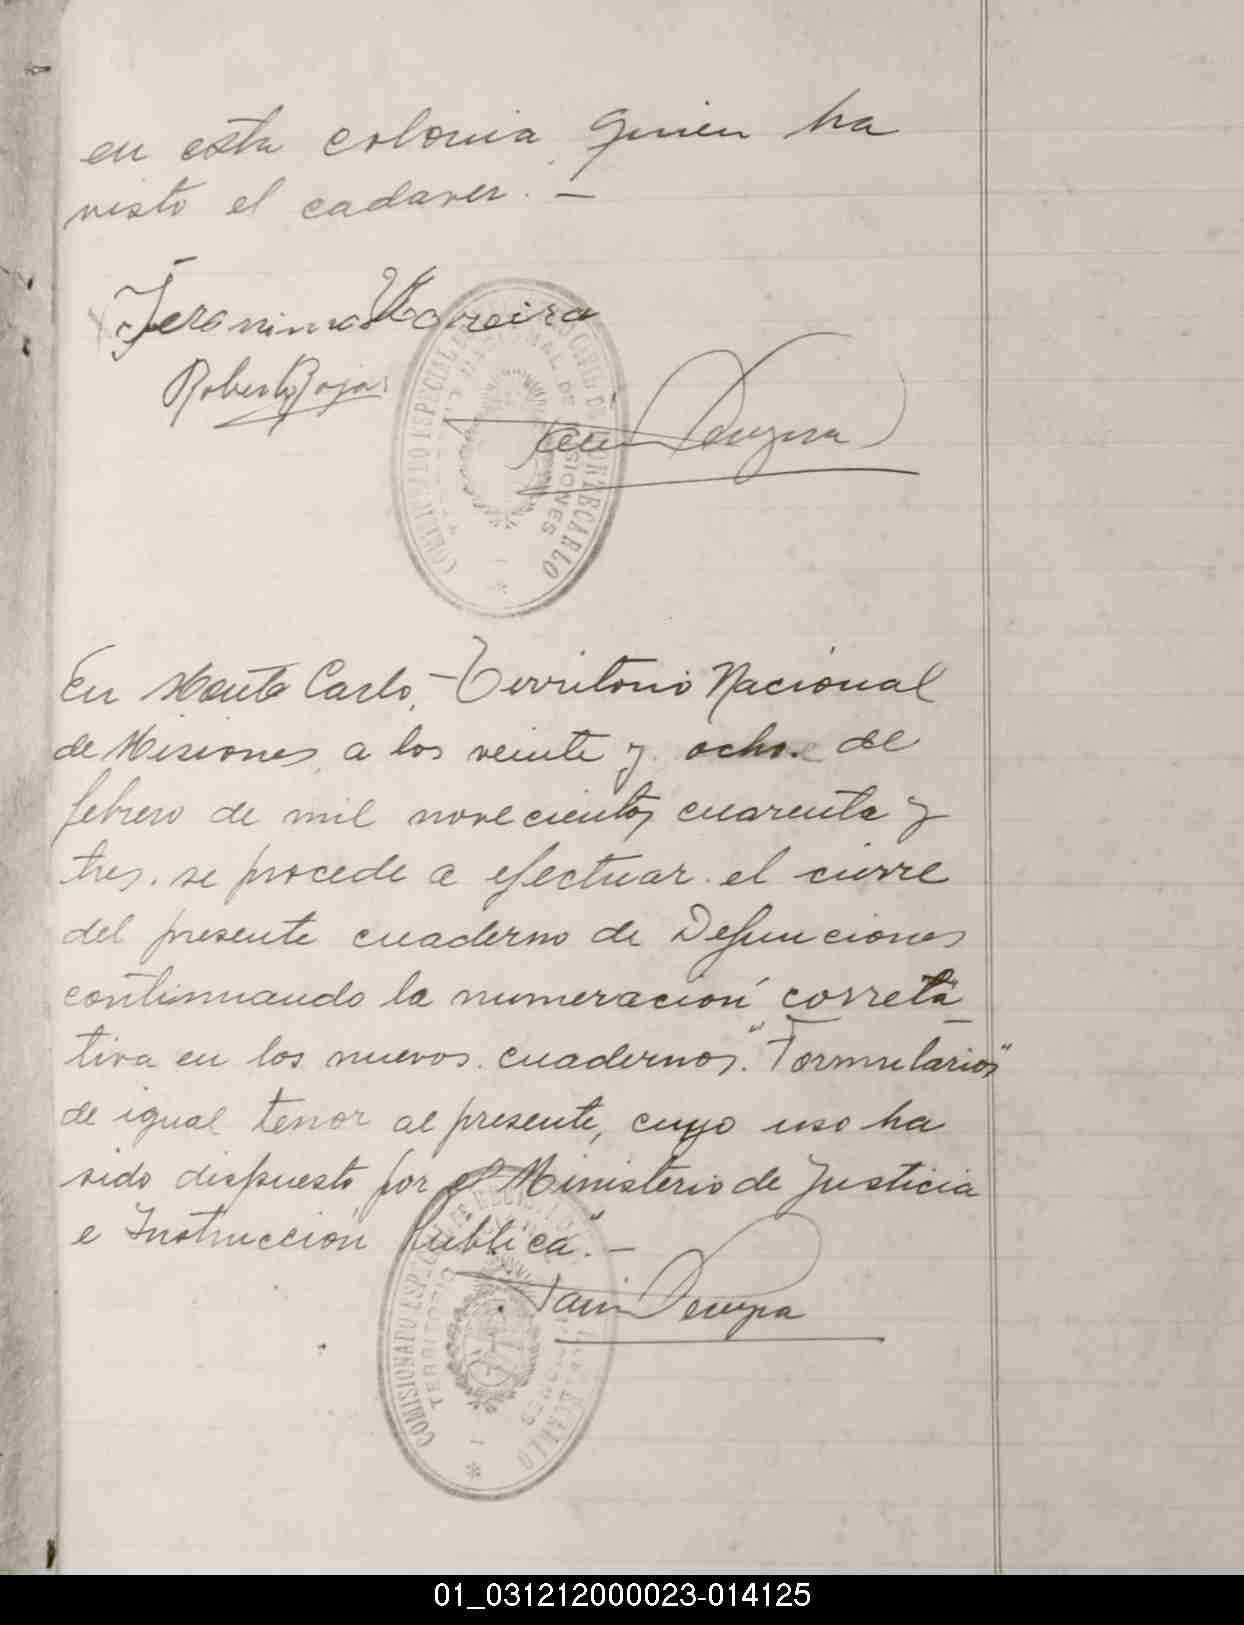 en esta colonia quien ha
visto el cadaver. —
Jeronimo Moreira
Roberto Rojas
COMISIONADO ESPECIAL DEL REGISTRO CIVIL DE MONTECARLO
NACIONAL DE MISIONES
En Monte Carlo, - Territorio Nacional
de Misiones a los veinte y ocho de
febrero de mil novecientos cuarenta y
tres. se procede a efectuar el cierre
del presente cuaderno de Defunciones
continuando la numeración correla
tiva en los nuevos cuadernos. "Formularios"
de igual tenor al presente, cuyo uso ha
sido dispuesto por el Ministerio de Justicia
e Instrucción Publica". —
COMISIONADO ESPECIAL
TERRITORIO
01_031212000023-014125